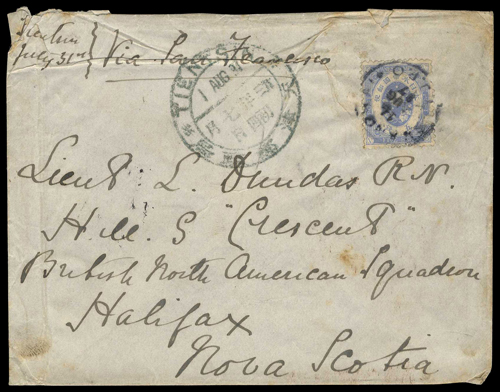 Tientsin
July 31st
Via San Francisco
TIENTSIN
1 AUG
Lieut: L. Dundas R.N.
H.M.S "Crescent"
British North American Squadron
Halifax
Nova Scotia